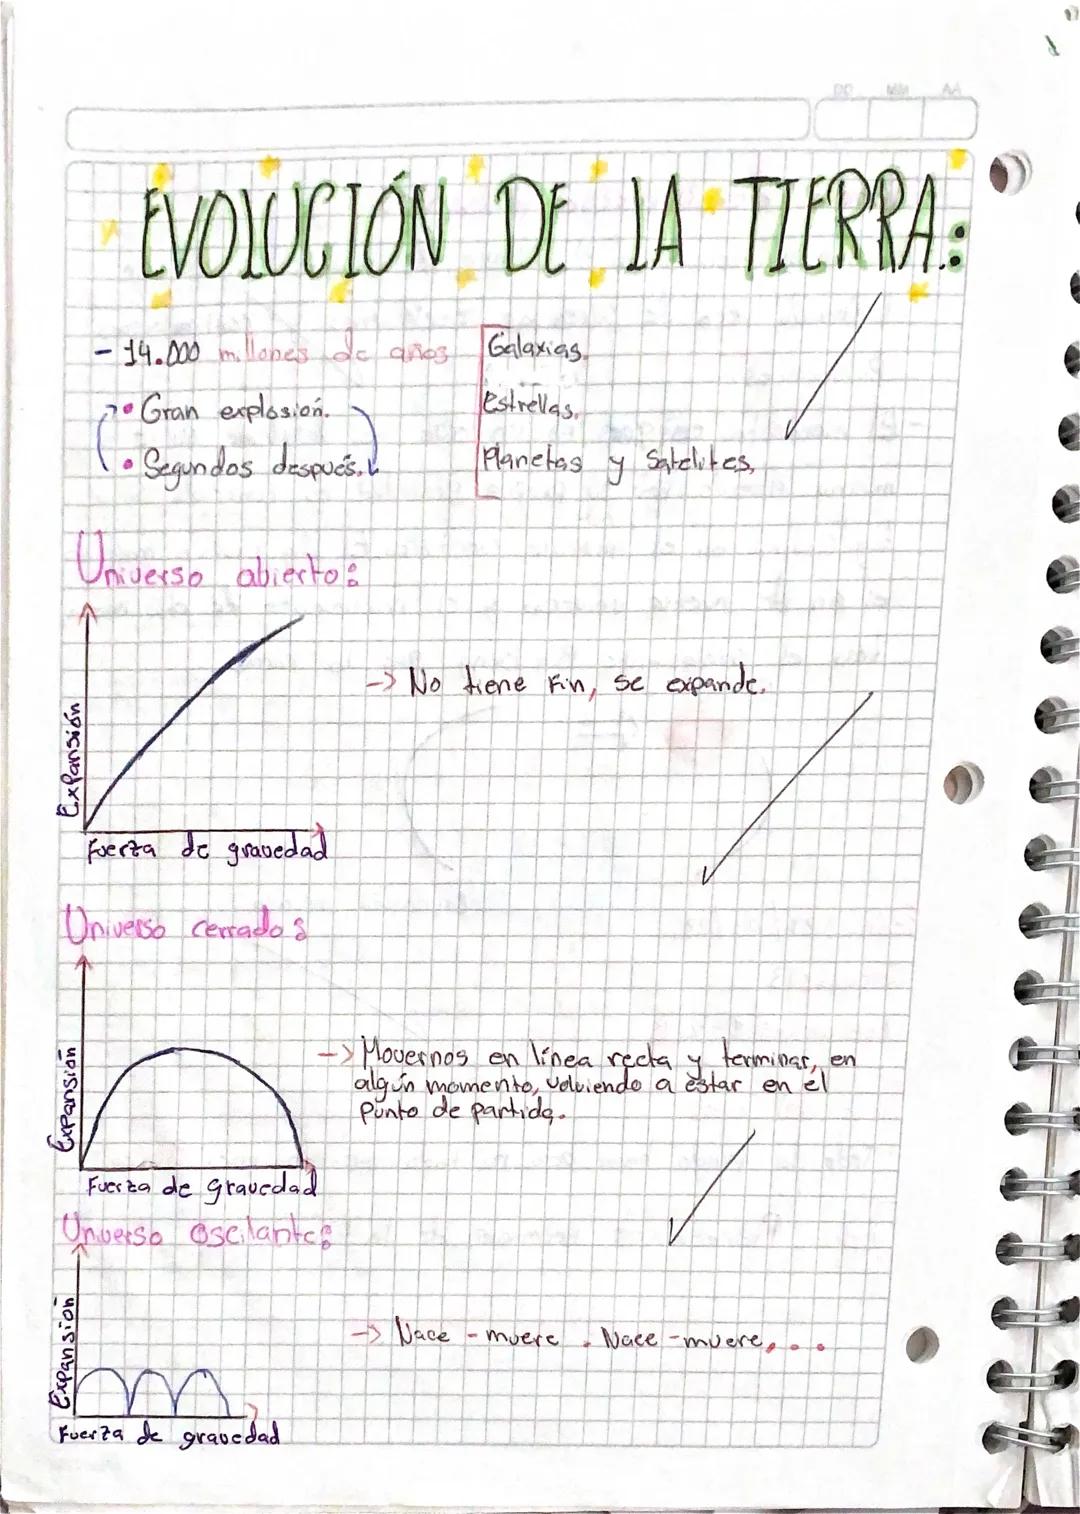 DD MM AA
EVOLUCIÓN DE LA TIERRA:
- 14.000 millones de años
• Gran explosión.
• Segundos después.
Galaxias.
Estrellas.
Planetas y Satelites.
Universo abierto:
Expansión
Fuerza de gravedad
-> No tiene Fin, se expande.
Universo cerrado:
Expansión
Fuerza de gravedad
-> Movernos en línea recta y terminar, en
algún momento, volviendo a estar en el
Punto de partida.
Universo oscilante:
Expansión
Fuerza de gravedad
-> Nace - muere . Nace - muere, . . .